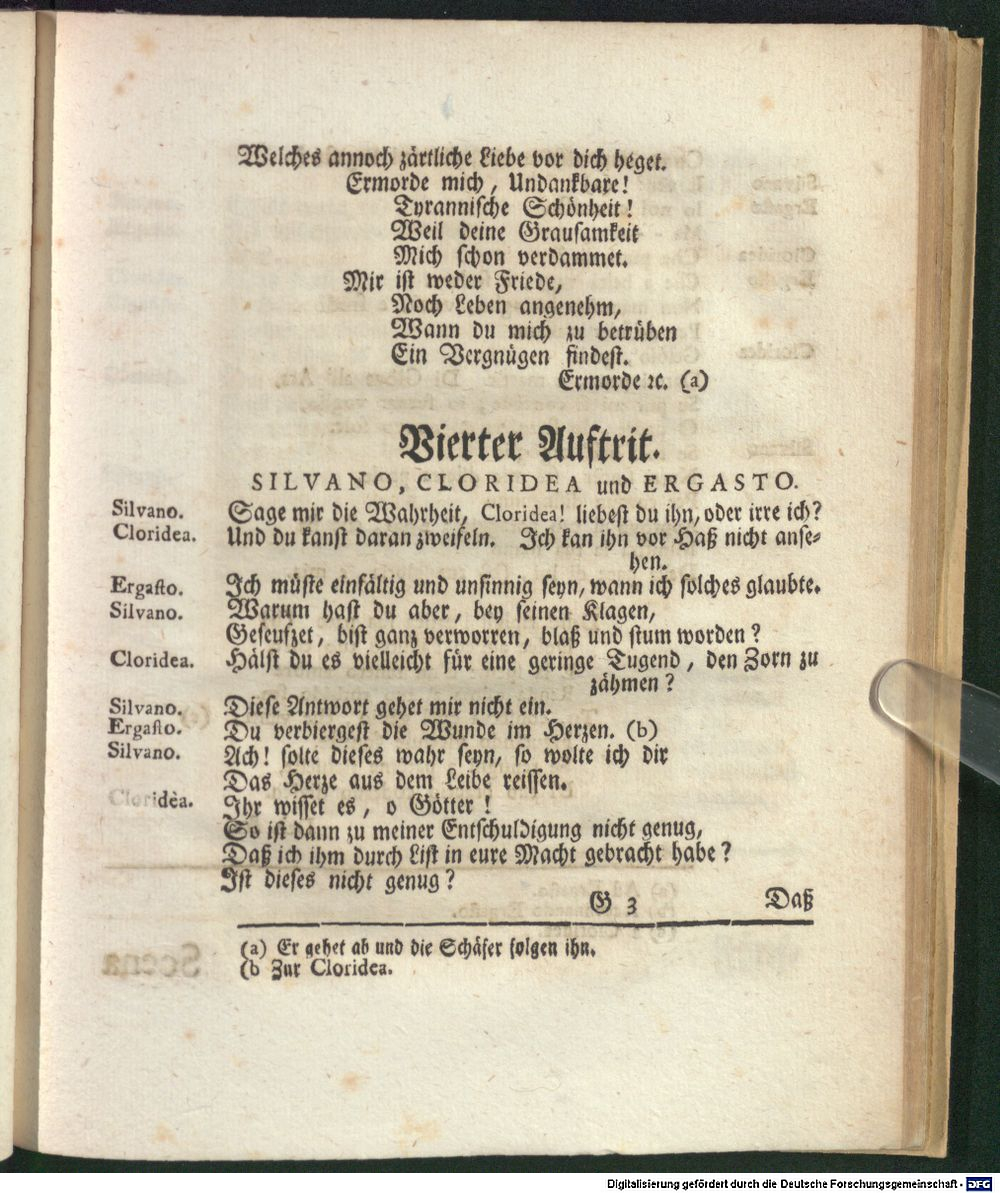 Welches annoch zärtliche Liebe vor dich heget.
Ermorde mich, Undankbare!
Tyrannische Schönheit!
Weil deine Grausamkeit
Mich schon verdammet.
Mir ist weder Friede,
Noch Leben angenehm,
Wann du mich zu betrüben
Ein Vergnügen findest.
Ermorde ꝛc. (a)
Vierter Auftrit.
SILVANO, CLORIDEA und ERGASTO.
Silvano. Sage mir die Wahrheit, Cloridea! liebest du ihn, oder irre ich?
Cloridea. Und du kanst daran zweifeln. Ich kan ihn vor Haß nicht anse-
hen.
Ergasto. Ich müste einfältig und unsinnig seyn, wann ich solches glaubte.
Silvano. Warum hast du aber, bey seinen Klagen,
Geseufzet, bist ganz verworren, blaß und stum worden?
Cloridea. Hälst du es vielleicht für eine geringe Tugend, den Zorn zu
zähmen?
Silvano. Diese Antwort gehet mir nicht ein.
Ergasto. Du verbiergest die Wunde im Herzen. (b)
Silvano. Ach! solte dieses wahr seyn, so wolte ich dir
Das Herze aus dem Leibe reissen.
Cloridèa. Ihr wisset es, o Götter!
So ist dann zu meiner Entschuldigung nicht genug,
Daß ich ihm durch List in eure Macht gebracht habe?
Ist dieses nicht genug?
G 3 Daß
(a) Er gehet ab und die Schäfer folgen ihn.
(b Zur Cloridea.
Digitalisierung gefördert durch die Deutsche Forschungsgemeinschaft - DFG